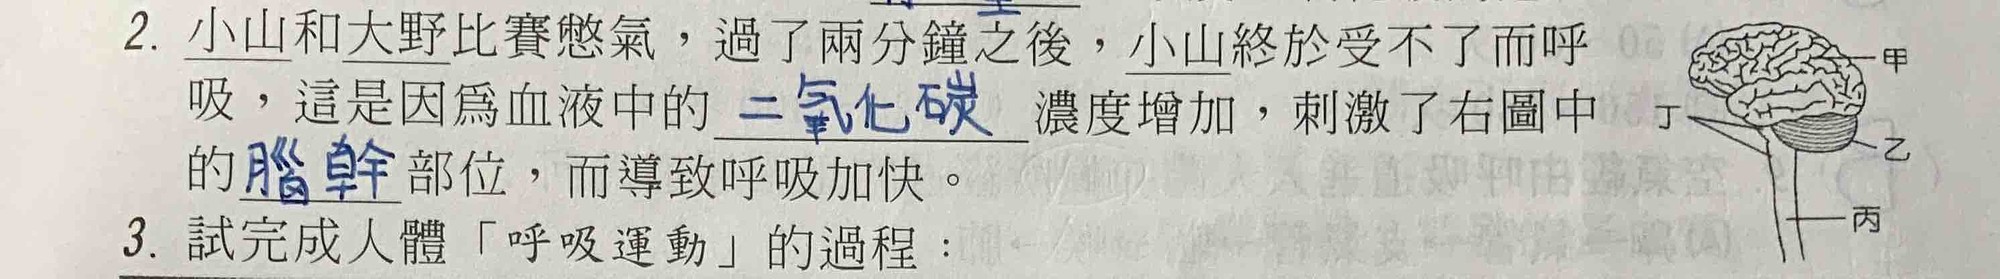 2. 小山和大野比賽憋氣，過了兩分鐘之後，小山終於受不了而呼
吸，這是因為血液中的 二氧化碳 濃度增加，刺激了右圖中
的 腦幹 部位，而導致呼吸加快。
3. 試完成人體「呼吸運動」的過程：
甲
丁
乙
丙